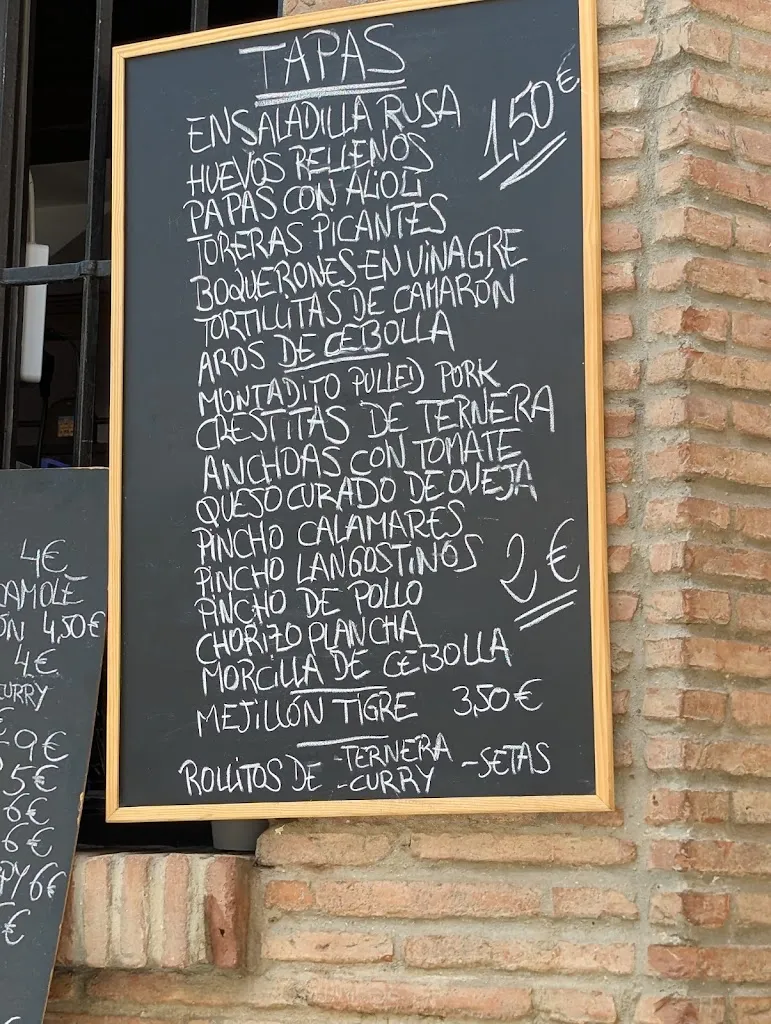 TAPAS
1,50€
ENSALADILLA RUSA
HUEVOS RELLENOS
PAPAS CON ALIOLI
TORERAS PICANTES
BOQUERONES EN VINAGRE
TORTILLITAS DE CAMARÓN
AROS DE CEBOLLA
MONTADITO PULLED PORK
CRESTITAS DE TERNERA
ANCHOAS CON TOMATE
QUESO CURADO DE OVEJA
PINCHO CALAMARES
PINCHO LANGOSTINOS
2€
PINCHO DE POLLO
CHORIZO PLANCHA
MORCILLA DE CEBOLLA
MEJILLÓN TIGRE 3,50€
ROLLITOS DE -TERNERA -SETAS
-CURRY
4€
4,50€
4€
CURRY
9€
5€
6€
6€
6€
€